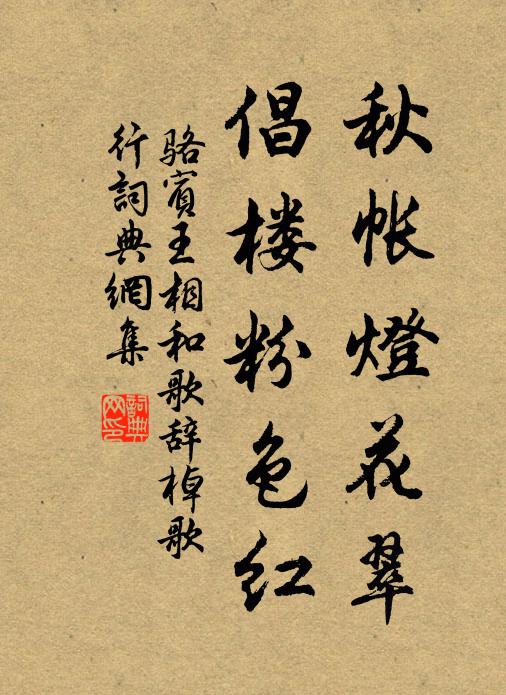 秋帐燈花翠
倡楼粉色红
骆賓王相和歌辞棹歌
行詞典網集
詞典
网印